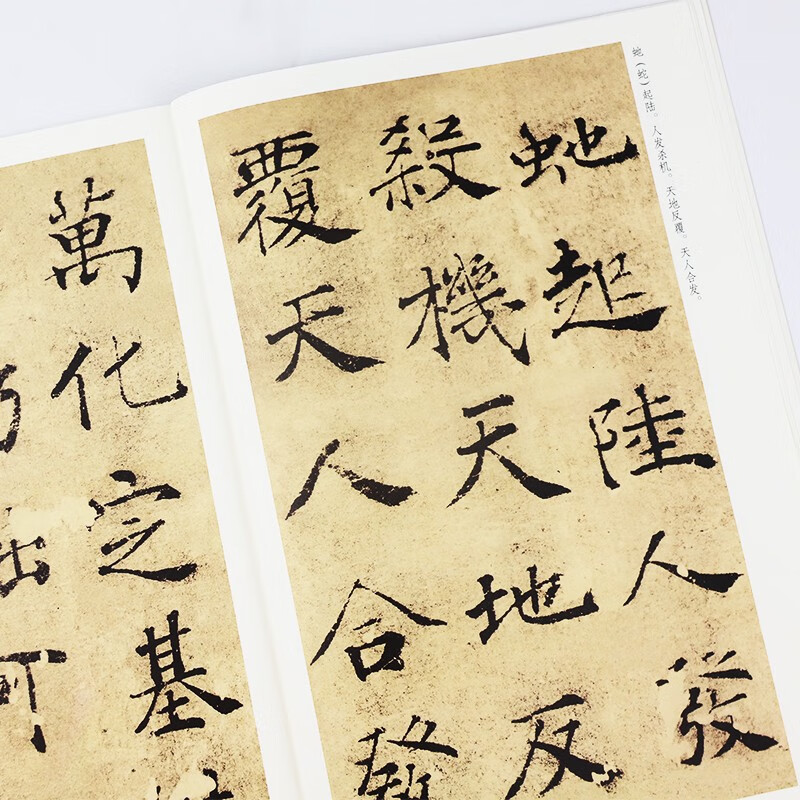 虵（蛇）起陆。人发杀机。天地反覆。天人合发。
虵起陸人發
殺機天地反
覆天人合發
萬化定基